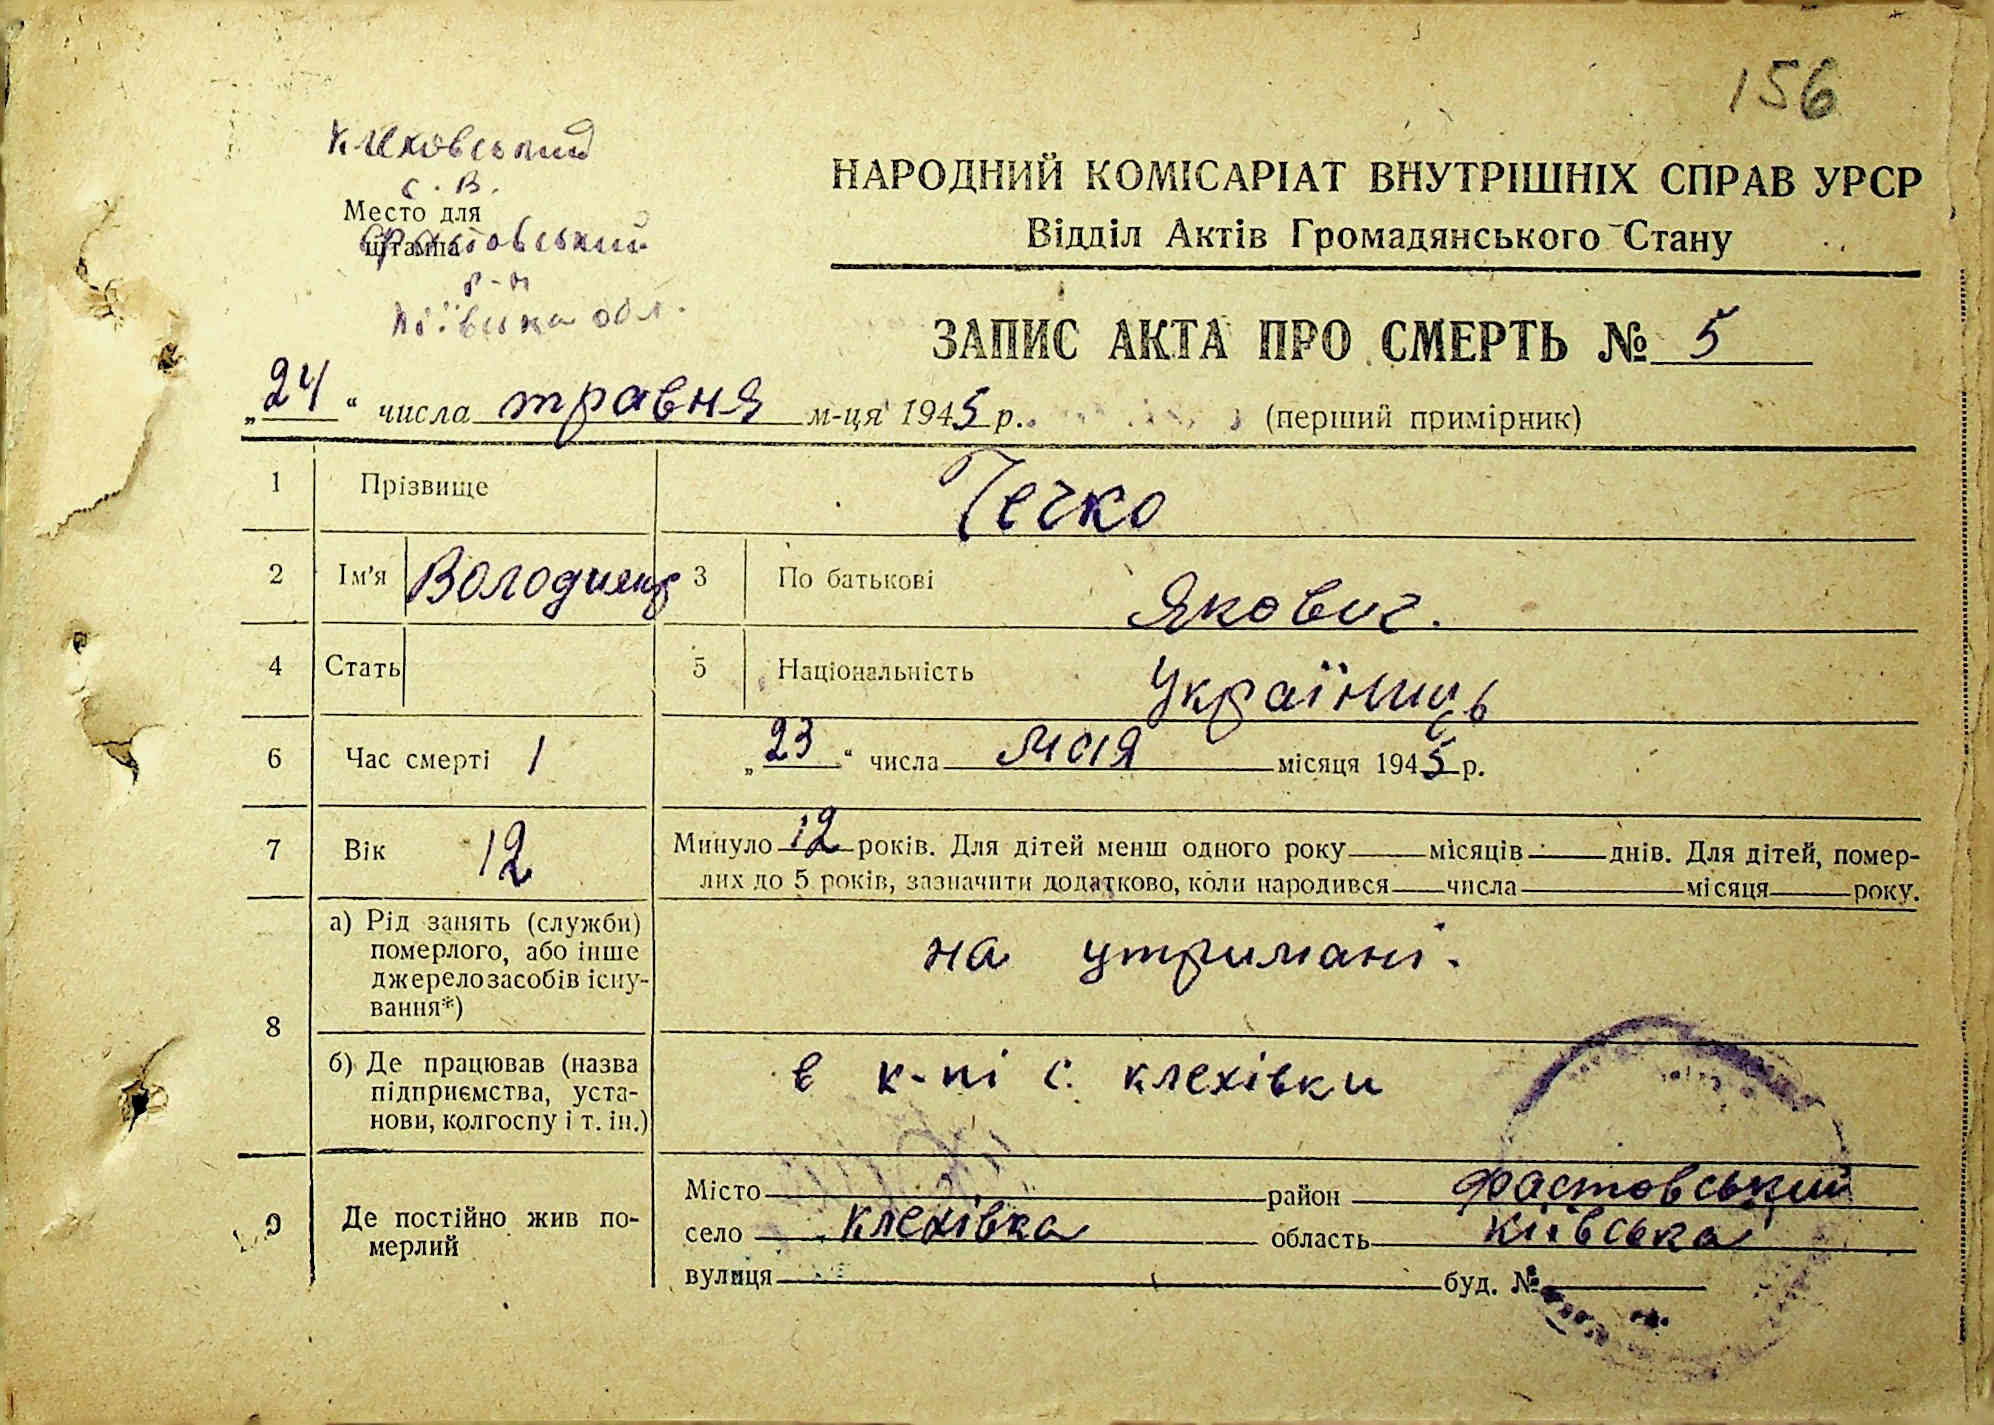 156
Клеховський
с. в.
Место для
штампа
Фастовський
р-н
Київська обл.
НАРОДНИЙ КОМІСАРІАТ ВНУТРІШНІХ СПРАВ УРСР
Відділ Актів Громадянського Стану
ЗАПИС АКТА ПРО СМЕРТЬ № 5
„24“ числа травня м-ця 1945 р. (перший примірник)
1 Прізвище Течко
2 Ім'я Володимир 3 По батькові Якович.
4 Стать 5 Національність Українець
6 Час смерті 1 „23“ числа мая місяця 1945 р.
7 Вік 12 Минуло 12 років. Для дітей менш одного року місяців днів. Для дітей, помер-
лих до 5 років, зазначити додатково, коли народився числа місяця року.
8 а) Рід занять (служби)
померлого, або інше
джерело засобів існу-
вання*)
на утримані.
б) Де працював (назва
підприємства, уста-
нови, колгоспу і т. ін.)
в к-пі с. клехівки
9 Де постійно жив по-
мерлий
Місто район Фастовський
село Клехівка область Київська
вулиця буд. №